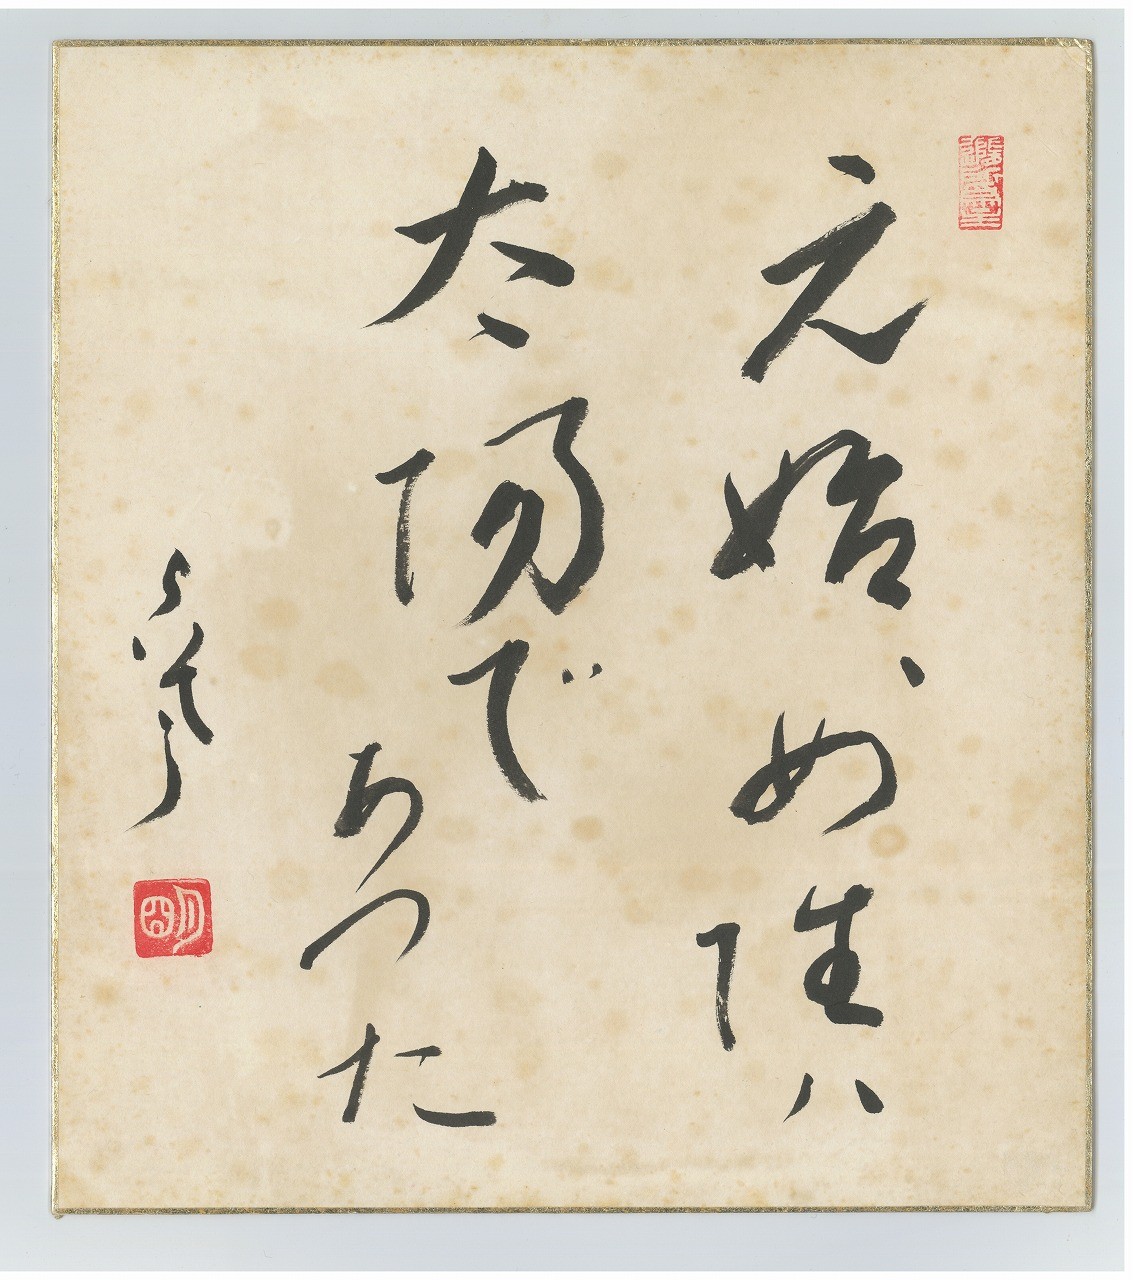 元始、女性ハ
太陽であつた
らいてう
明